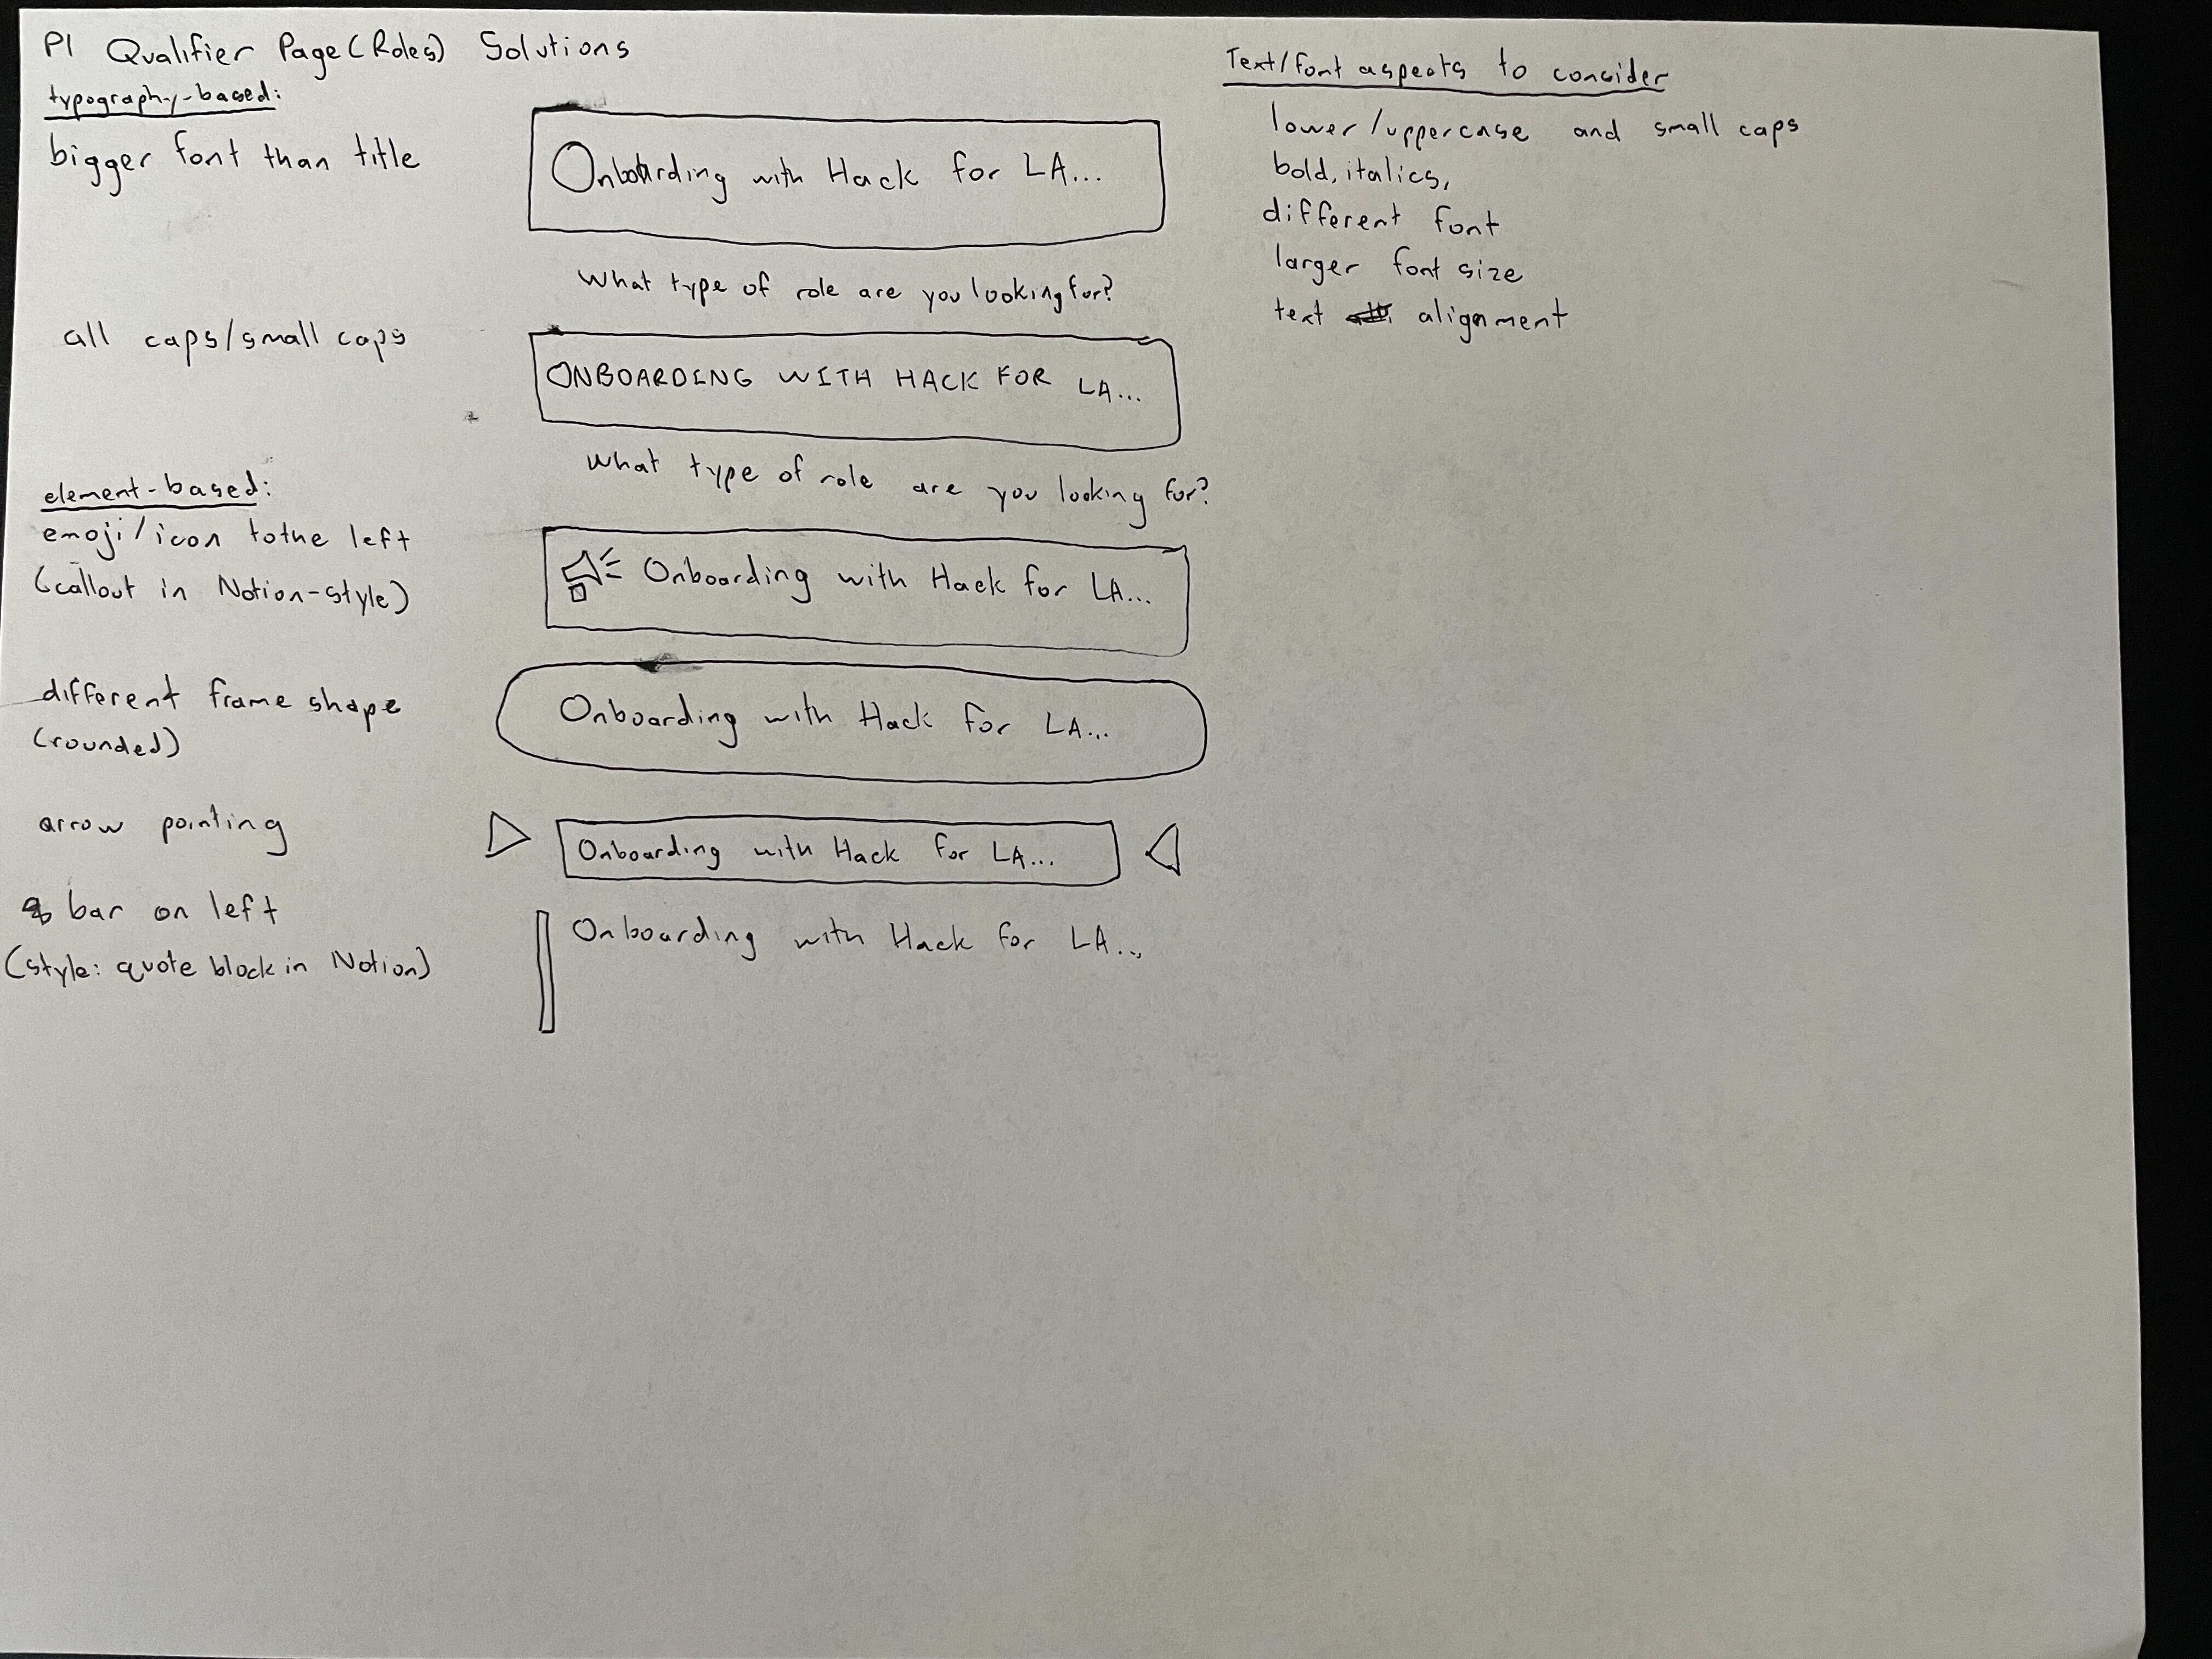 P1 Qualifier Page (Roles) Solutions
typography-based:
bigger font than title
Onboarding with Hack for LA...
What type of role are you looking for?
all caps/small caps
ONBOARDING WITH HACK FOR LA...
What type of role are you looking for?
element-based:
emoji/icon to the left
(callout in Notion-style)
Onboarding with Hack for LA...
different frame shape
(rounded)
Onboarding with Hack for LA...
arrow pointing
Onboarding with Hack for LA...
bar on left
(style: quote block in Notion)
Onboarding with Hack for LA...
Text/font aspects to consider
lower/uppercase and small caps
bold, italics,
different font
larger font size
text alignment